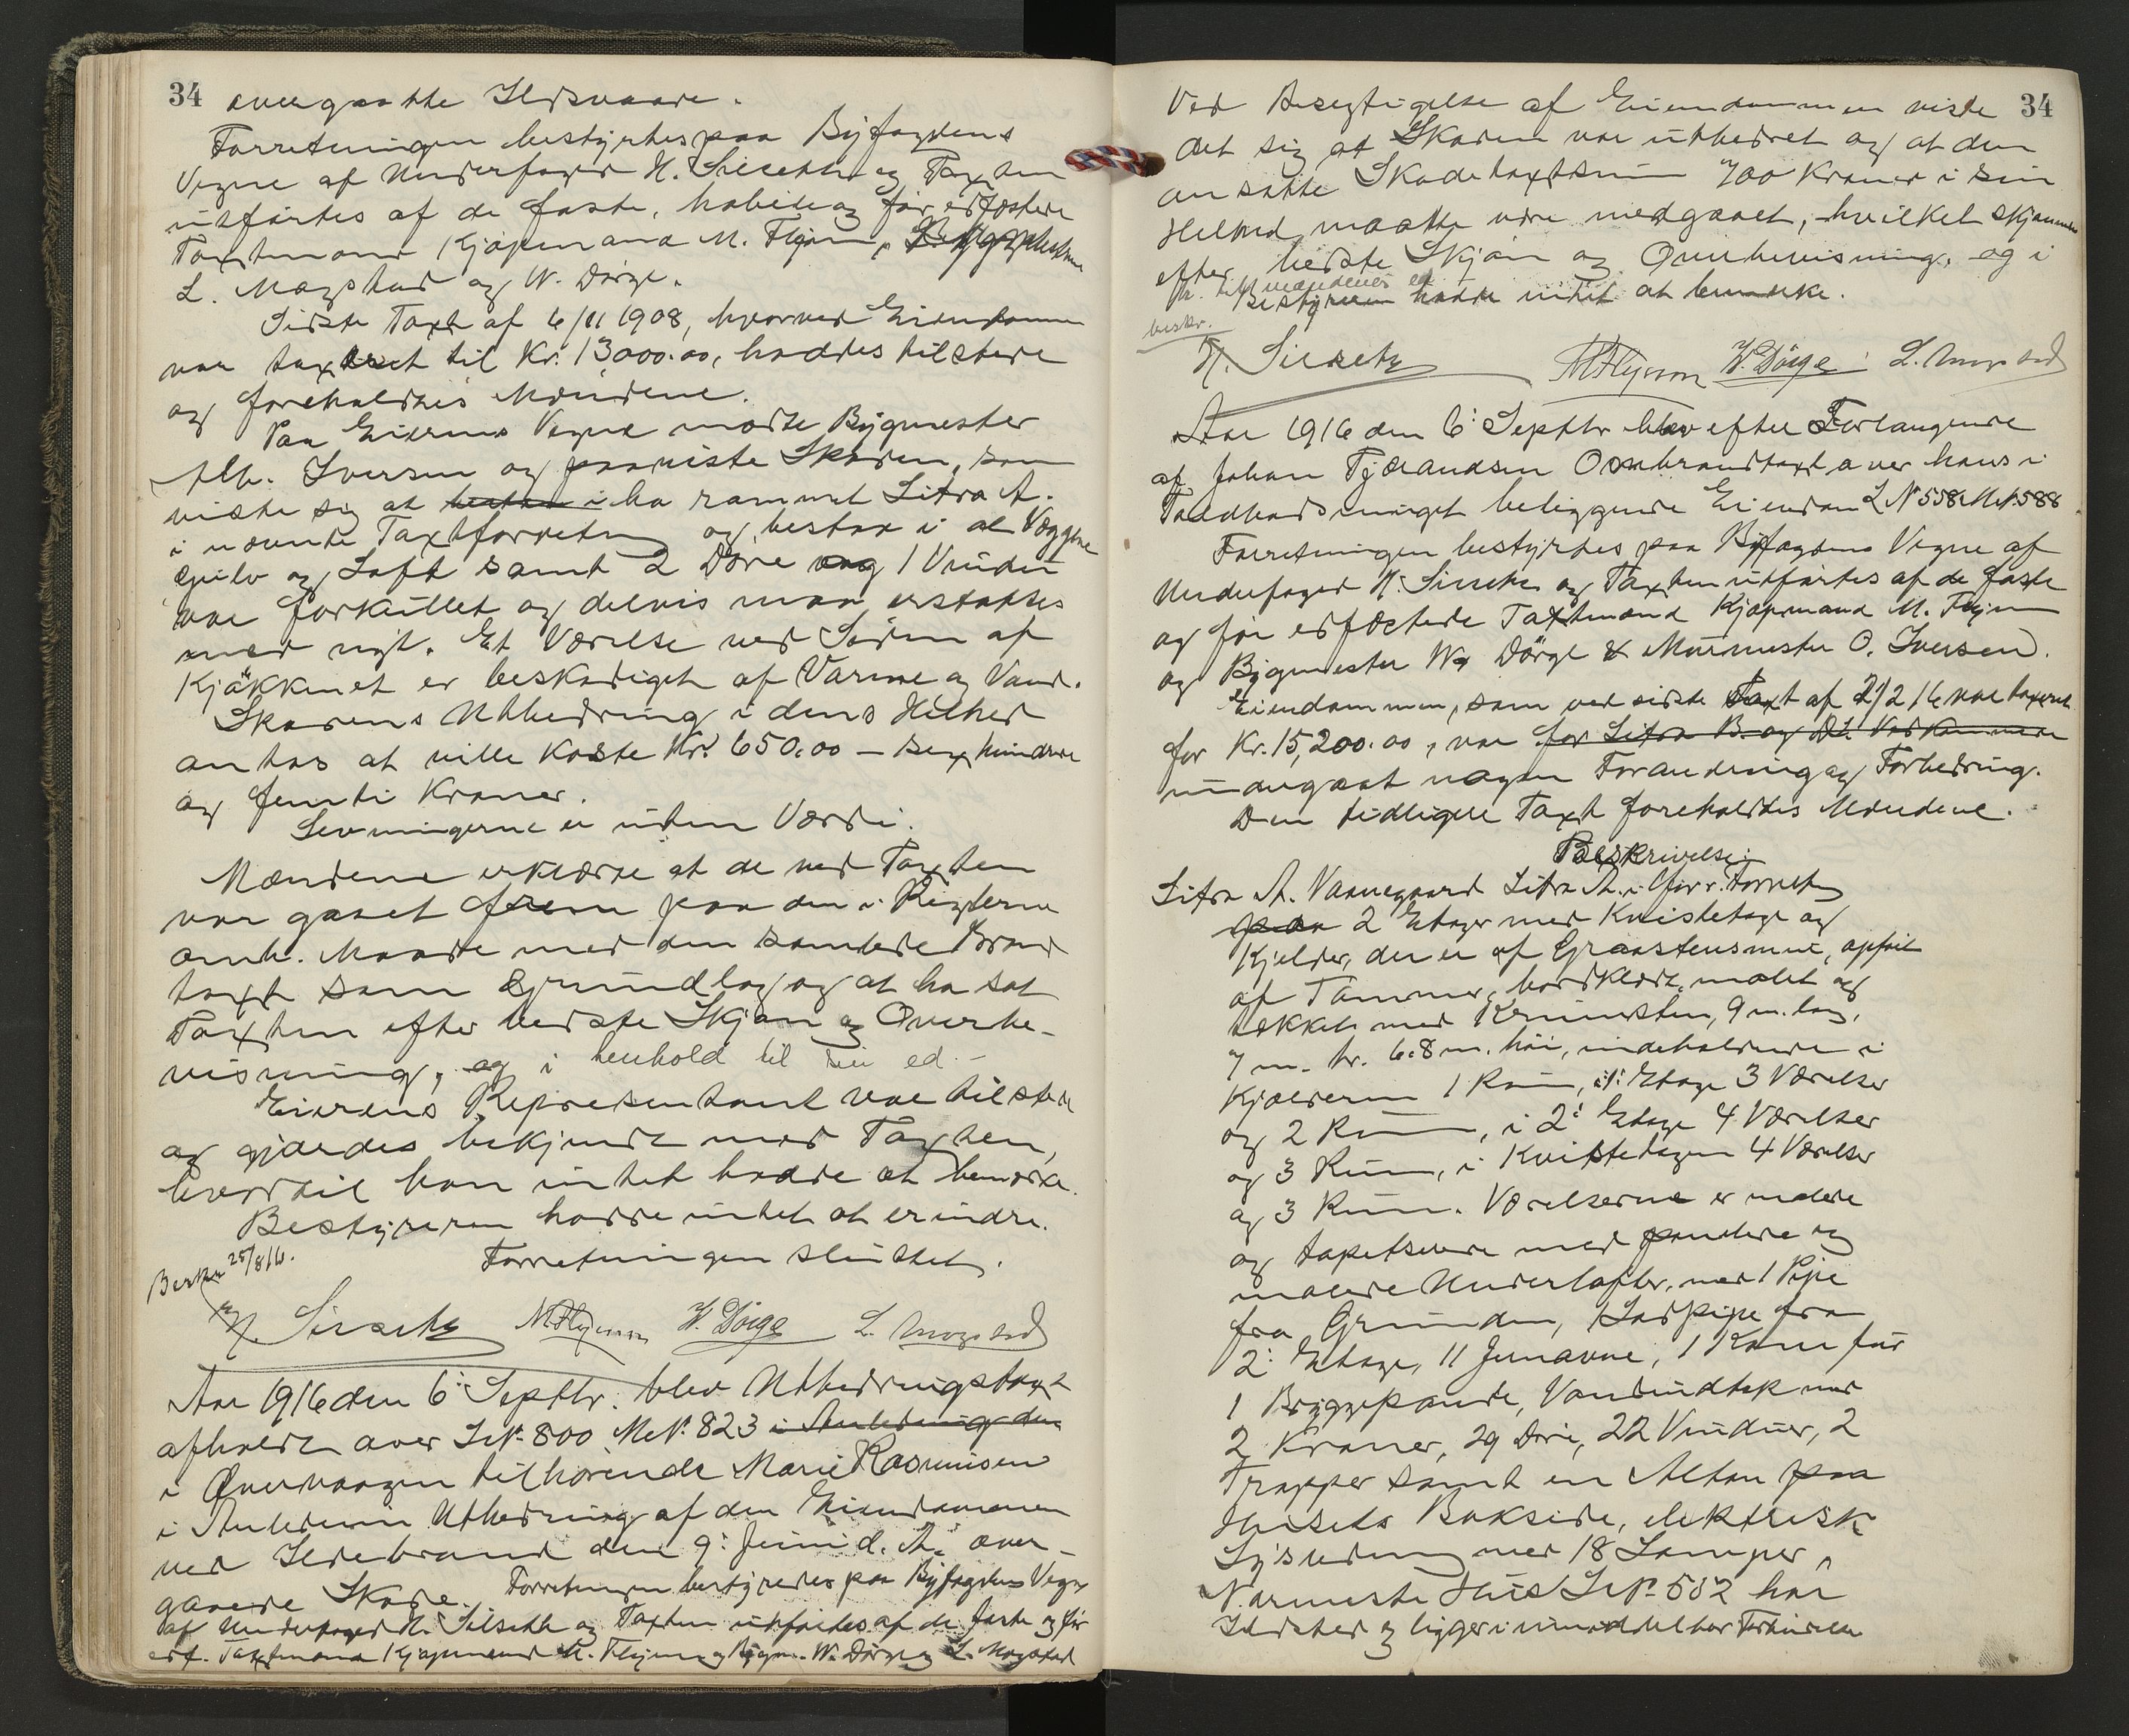 34
overgaatte Ildsvaade.
Forretningen bestyrtes paa Byfogdens
Vegne af Underfoged H. Silseth og Taxten
utførtes af de faste, habile og før edfæstede
Taxtmænd Kjøpmand M. Flynn,
L. Magstad og W. Dörge.
Sidste Taxt af 6/11 1908, hvorved Eiendommen
var taxeret til Kr. 13,000.00, haddes tilstede
og foreholdtes Mændene.
Paa Eierens Vegne mødte Bygmester
Alb. Iversen og paaviste Skaden, som
viste sig at bestaa i ha rammet Litra A.
i nævnte Taxtforretn og bestaa i at Væggene
Gulv og Loft samt 2 Døre og 1 Vindu
var forkullet og delvis maa erstattes
med nyt. Et Værelse ved Siden af
Kjøkkenet er beskadiget af Varme og Vand.
Skadens Utbedring i dens Helhed
antas at ville koste Kr. 650.00 – sex hundrede
og femti Kroner.
Levningerne er uten Værdi.
Mændene erklærte at de ved Taxten
var gaaet frem paa den i Reglerne
omh. Maade med den samlede Brand
taxt som Grundlag og at ha sat
Taxten efter bedste Skjøn og Overbe-
visning, og i henhold til sin ed. –
Eierens Repræsentant var tilstede
og gjordes bekjendt med Taxten,
hvortil han intet hadde at bemærke.
Bestyreren hadde intet at erindre.
Forretningen sluttet.
Beskr 25/8 16.
H. Silseth M Flynn W. Dörge L. Magstad
Aar 1916 den 6' Septbr. blev Utbedringstaxt
afholdt over L.N. 800 M.N. 823 i Anledning den
i Overvaagen tilhørende Marie Rasmussen
i Anledning Utbedring af den Eiendommen
ved Ildebrand den 9' Juni d. A. over-
gaaede Skade. Forretningen bestyredes paa Byfogdens Vegne
af Underfoged H. Silseth og Taxten utførtes af de faste og før
edf. Taxtmænd Kjøpmand M. Flynn og Bygm. W. Dörge og L. Magstad
34
Ved Besigtigelse af Eiendommen viste
det sig at Skaden var utbedret og at den
ansatte Skadetaxtsum 700 Kroner i sin
Helhed maatte være medgaaet, hvilket skjønnedes
efter bedste Skjøn og Overbevisning, og i
h. til mændenes ed
Bestyreren hadde intet at bemærke.
beskr.
H. Silseth M Flynn W. Dörge L. Magstad
Aar 1916 den 6' Septbr blev efter Forlangende
af Johan Tjærandsen Ombrandtaxt over hans i
beliggende Eiendom L N° 558 M.N. 588
Forretningen bestyrtes paa Byfogdens Vegne af
Underfoged H. Silseth og Taxten utførtes af de faste
og før edfæstede Taxtmænd Kjøpmand M. Flynn
og Bygmester W. Dörge & Murmester O. Iversen.
Eiendommen, som ved sidste Taxt af 2/2 16 var taxeret
for Kr. 15,200.00, var for Litra B. og D.
undergaat nogen Forandring og Forbedring.
Den tidligere Taxt foreholdtes Mændene.
Beskrivelse:
Litra A. Vaanegaard Litra A. i forr. Forretn
paa 2 Etager med Kvistetage og
Kjelder, der er af Graastensmur, opført
af Tømmer, bordklædt, malet og
tækket med Kruimsten, 9 m. lang,
7 m. br. 6.8 m. høi, indeholdende i
Kjælderen 1 Rum, i 1' Etage 3 Værelser
og 2 Rum, i 2' Etage 4 Værelser
og 3 Rum, i Kvistetagen 4 Værelser
og 3 Rum. Værelserne er malede
og tapetserede med panelede og
malede Underlofter, med 1 Pipe
fra Grunden, 1 Ladpipe fra
2' Etage, 11 Jernovne, 1 Komfur
1 Bryggepande, Vandindtak med
2 Kraner, 29 Døre, 22 Vinduer, 2
Trapper samt en Altan paa
Husets Bakside, elektrisk
Lysledning med 18 Lamper,
Nærmeste Hus L.N. 582 har
Ildsted og ligger i umiddelbar Forbindelse